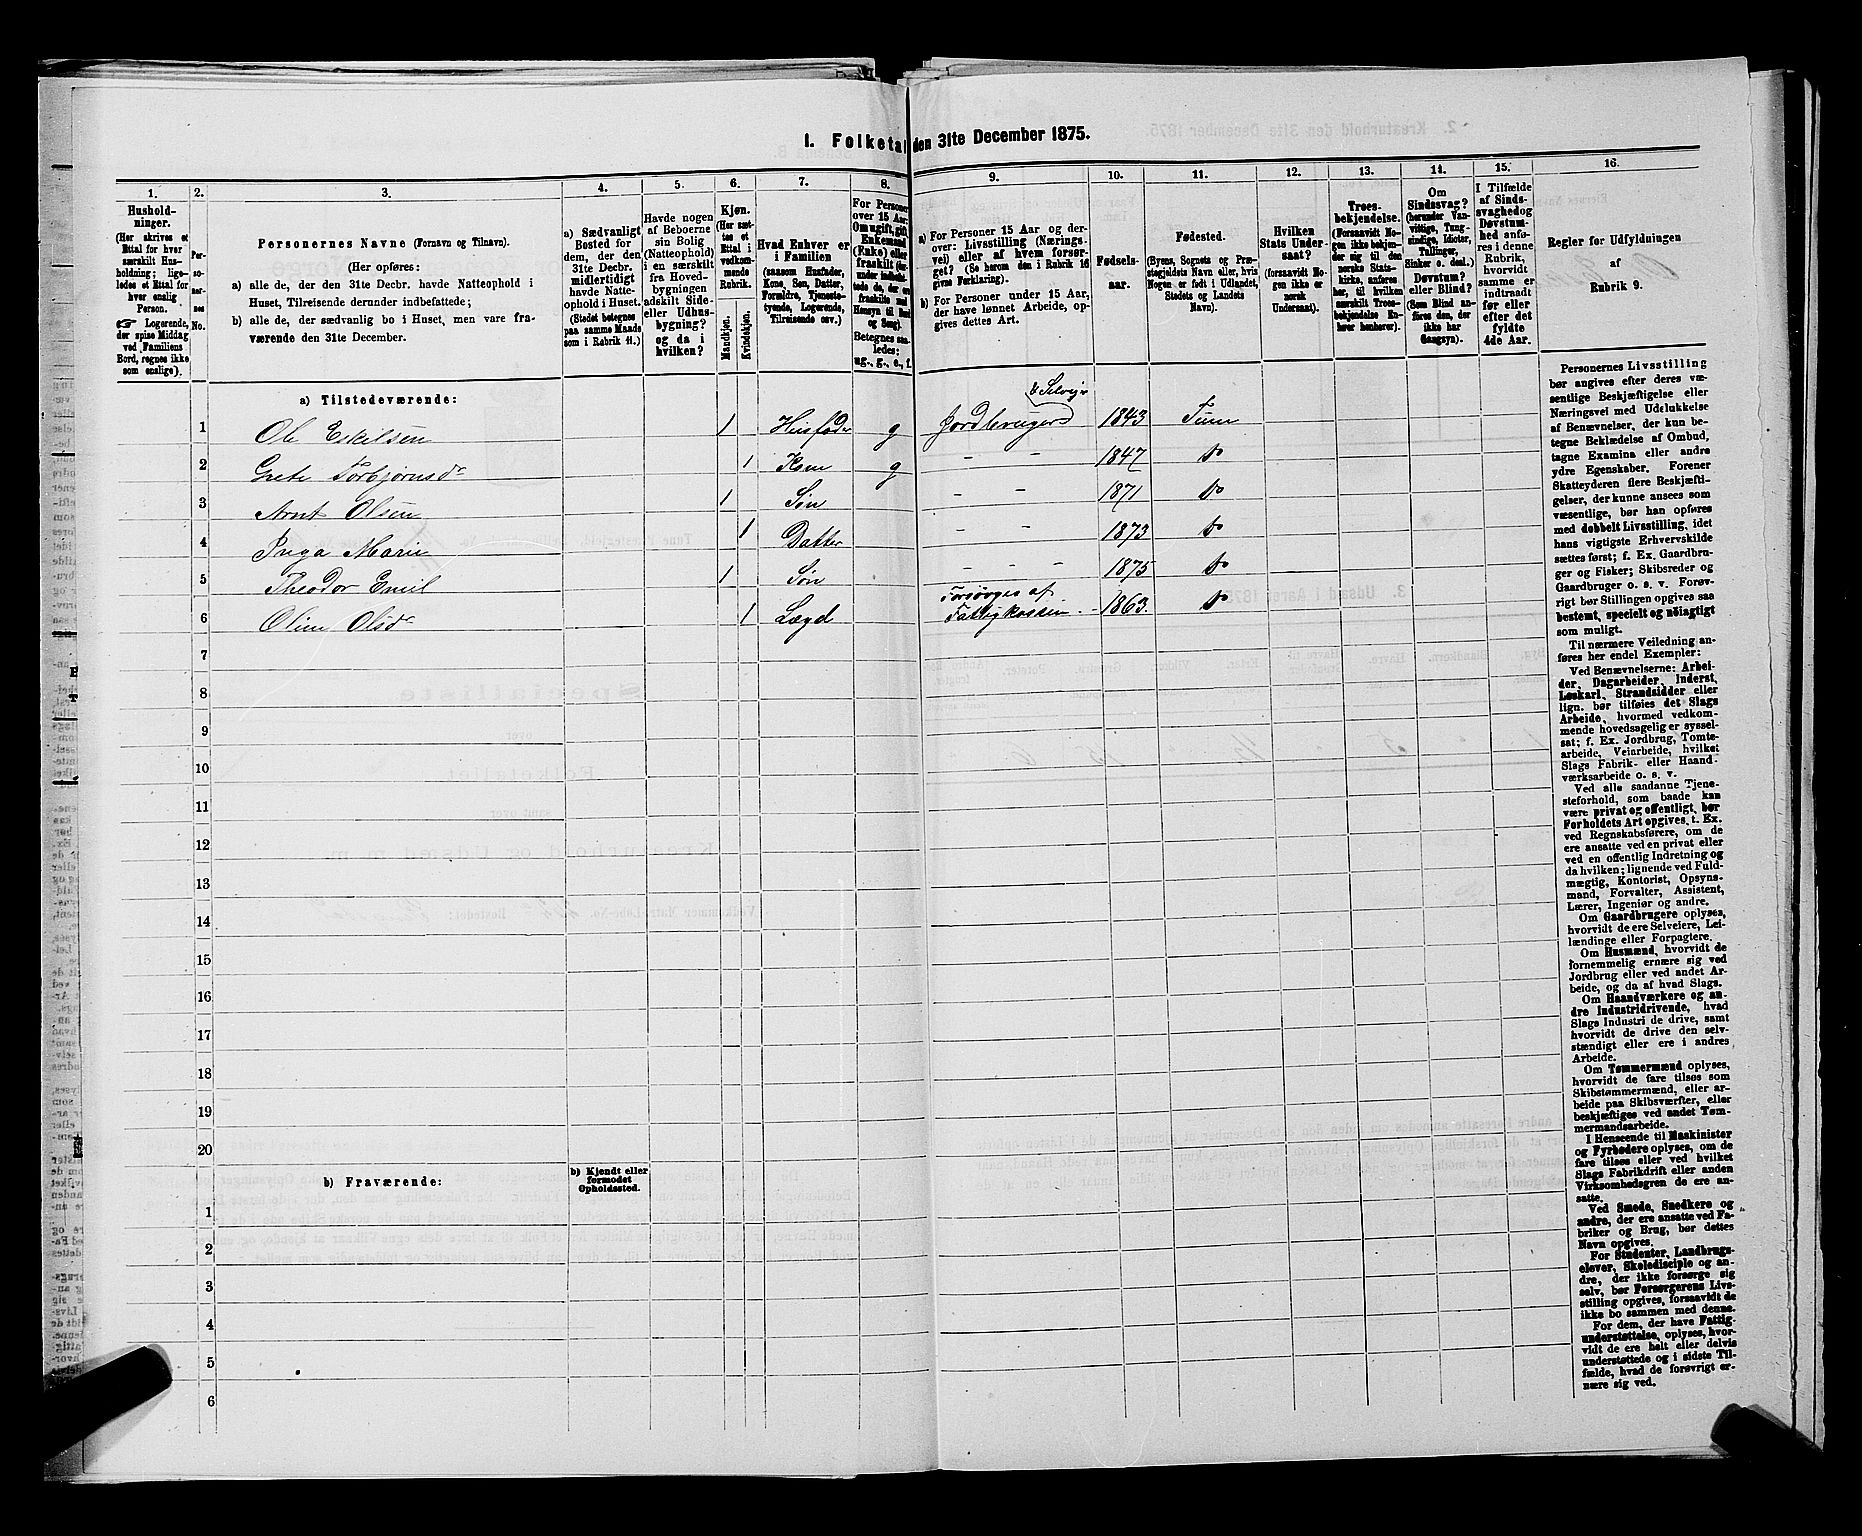 1. Folketal den 31te December 1875.
1.
2.
3.
4.
5.
6.
7.
8.
9.
10.
11.
12.
13.
14.
15.
16.
Hushold-
ninger.
(Her skrives et
Ettal for hver
særskilt Hus-
holdning; lige-
ledes et Ettal for
hver enslig
Person.
☞ Logerende,
der spise Middag
ved Familiens
Bord, regnes ikke
som enslige).
Per-
so-
ner-
nes
No.
Personernes Navne (Fornavn og Tilnavn).
(Her opføres:
a) alle de, der den 31te Decbr. havde Natteophold i
Huset, Tilreisende derunder indbefattede;
b) alle de, der sædvanlig bo i Huset, men vare fra-
værende den 31te December.
a) Sædvanligt
Bosted for
dem, der den
31te Decbr.
midlertidigt
havde Natte-
ophold i Huset.
(Stedet betegnes
paa samme Maade
som i Rubrik 11.)
Havde nogen
af Beboerne
sin Bolig
(Natteophold)
i en særskilt
fra Hoved-
bygningen
adskilt Side-
eller Udhus-
bygning?
og da i
hvilken?
Kjøn.
(Her sæt-
tes et
Ettal i
vedkom-
mende
Rubrik.
Mandkjøn.
Kvindekjøn.
Hvad Enhver er
i Familien
(saasom Husfader,
Kone, Søn, Datter,
Forældre, Tjeneste-
tyende, Logerende,
Tilreisende osv.)
For Personer
over 15 Aar:
Om ugift, gift,
Enkemand
(Enke) eller
fraskilt
Betegnes saa-
ledes:
ug., g., e., f.
a) For Personer 15 Aar og der-
over: Livsstilling (Nærings-
vei) eller af hvem forsør-
get? (Se herom den i Rubrik 16
givne Forklaring).
b) For Personer under 15 Aar,
der have lønnet Arbeide, op-
gives dettes Art.
Fødsels-
aar.
Fødested.
(Byens, Sognets og Præ-
stegjeldets Navn eller, hvis
Nogen er født i Udlandet,
Stedets og Landets
Navn).
Hvilken
Stats Under-
saat?
(forsaavidt No-
gen ikke er
norsk
Undersaat).
Troes-
bekjendelse.
(Forsaavidt No-
gen ikke bekjen-
der sig til den
norske Stats-
kirke, anføres
her, til hvilken
særskilt Troes-
bekjendelse En-
hver henhører).
Om
Sindssvag?
(herunder Van-
vittige, Tung-
sindige, Idioter,
Tullinger,
Sinker o. desl.)
Døvstum?
eller Blind?
(Som Blind an-
føres den, der
ikke har
Gangsyn).
I Tilfælde
af Sinds-
svaghed og
Døvstum-
hed anfø-
res i denne
Rubrik,
hvorvidt
samme er
indtraadt
før eller
efter det
fyldte
4de Aar.
Regler for Udfyldningen
af
Rubrik 9.
a) Tilstedeværende:
1 Ole Eskilsen 1 Husfader g Jordbruger & Selvejer 1843 Tune
2 Grete Torbjørnsdr 1 Kone g - - 1847 do
3 Arnt Olsen 1 Søn - - 1871 do
4 Inga Marie 1 Datter - - 1873 do
5 Theodor Emil 1 Søn - - - 1875 do
6 Oline Olsdr 1 Lægd Forsørges af Fattigkassen 1863. do
7
8
9
10
11
12
13
14
15
16
17
18
19
20
b) Fraværende:
b) Kjendt eller
formodet
Opholdssted.
1
2
3
4
5
6
Personernes Livsstilling
bør angives efter deres væ-
sentlige Beskjæftigelse eller
Næringsvei med Udelukkelse
af Benævnelser, der kun be-
tegne Beklædelse af Ombud,
tagne Examina eller andre
ydre Egenskaber. Forener
Skatteyderen flere Beskjæfti-
gelser, der kunne ansees som
væsentlige, bør han opføres
med dobbelt Livsstilling, idet
hans vigtigste Erhvervskilde
sættes først; f. Ex. Gaardbru-
ger og Fisker; Skibsreder og
Gaardbruger o. s. v. Forøv-
rigt bør Stillingen opgives saa
bestemt, specielt og nøiagtigt
som muligt.
Til nærmere Veiledning an-
føres her endel Exempler:
Ved Benævnelserne: Arbei-
der, Dagarbeider, Inderst,
Løskarl, Strandsidder eller
lign. bør tilføies det Slags
Arbeide, hvormed vedkom-
mende hovedsagelig er syssel-
sat; f. Ex. Jordbrug, Tomte-
arbeide, Veiarbeide, hvilket
Slags Fabrik- eller Haand-
værksarbeide o. s. v.
Ved alle saadanne Tjene-
steforhold, som baade kan
være privat og offentligt, bør
Forholdets Art opgives, t. Ex.
ved Regnskabsførere, om de
ere ansatte ved en privat eller
ved en offentlig Indretning og
da hvilken; lignende ved Fuld-
mægtig, Kontorist, Opsyns-
mand, Forvalter, Assistent,
Lærer, Ingeniør og andre.
Om Gaardbrugere oplyses,
hvorvidt de ere Selveiere, Lei-
lændinge eller Forpagtere.
Om Husmænd, hvorvidt de
fornemmelig ernære sig ved
Jordbrug eller ved andet Ar-
beide, og da af hvad Slags.
Om Haandværkere og an-
dre Industridrivende, hvad
Slags Industri de drive, samt
hvorvidt de drive den selv-
stændigt eller ere i andres
Arbeide.
Om Tømmermænd oplyses,
hvorvidt de fare tilsøs som
Skibstømmermænd, eller ar-
beide paa Skibsværfter, eller
beskjæftiges ved andet Tøm-
mermandsarbeide.
I Henseende til Maskinister
og Fyrbødere oplyses, om de
fare tilsøs eller ved hvilket
Slags Fabrikdrift eller anden
Virksomhedsgren de ere an-
satte.
Ved Smede, Snedkere og
andre, der ere ansatte ved Fa-
briker og Brug, bør dettes
Navn opgives.
For Studenter, Landbrugs-
elever, Skoledisciple og an-
dre, der ikke forsørge sig
selv, bør Forsørgerens Livs-
stilling opgives, forsaavidt de
ikke bo sammen med denne.
For dem, der have Fattig-
understøttelse, oplyses, hvor-
vidt de ere helt eller delvis
understøttede og i sidste Til-
fælde, hvad de forøvrigt er-
nære sig ved.